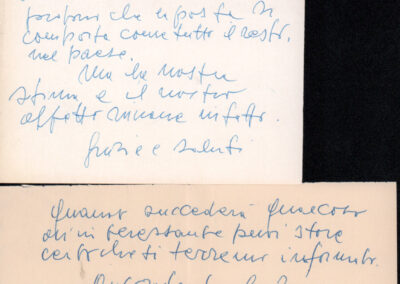 che la posta si
comporta come tutto il resto.
nel paese.
Ma la nostra
stima e il nostro
affetto rimane intatto.
Grazie e saluti
Quando succederà qualcosa
di interessante puoi stare
certo che ti terremo informato.